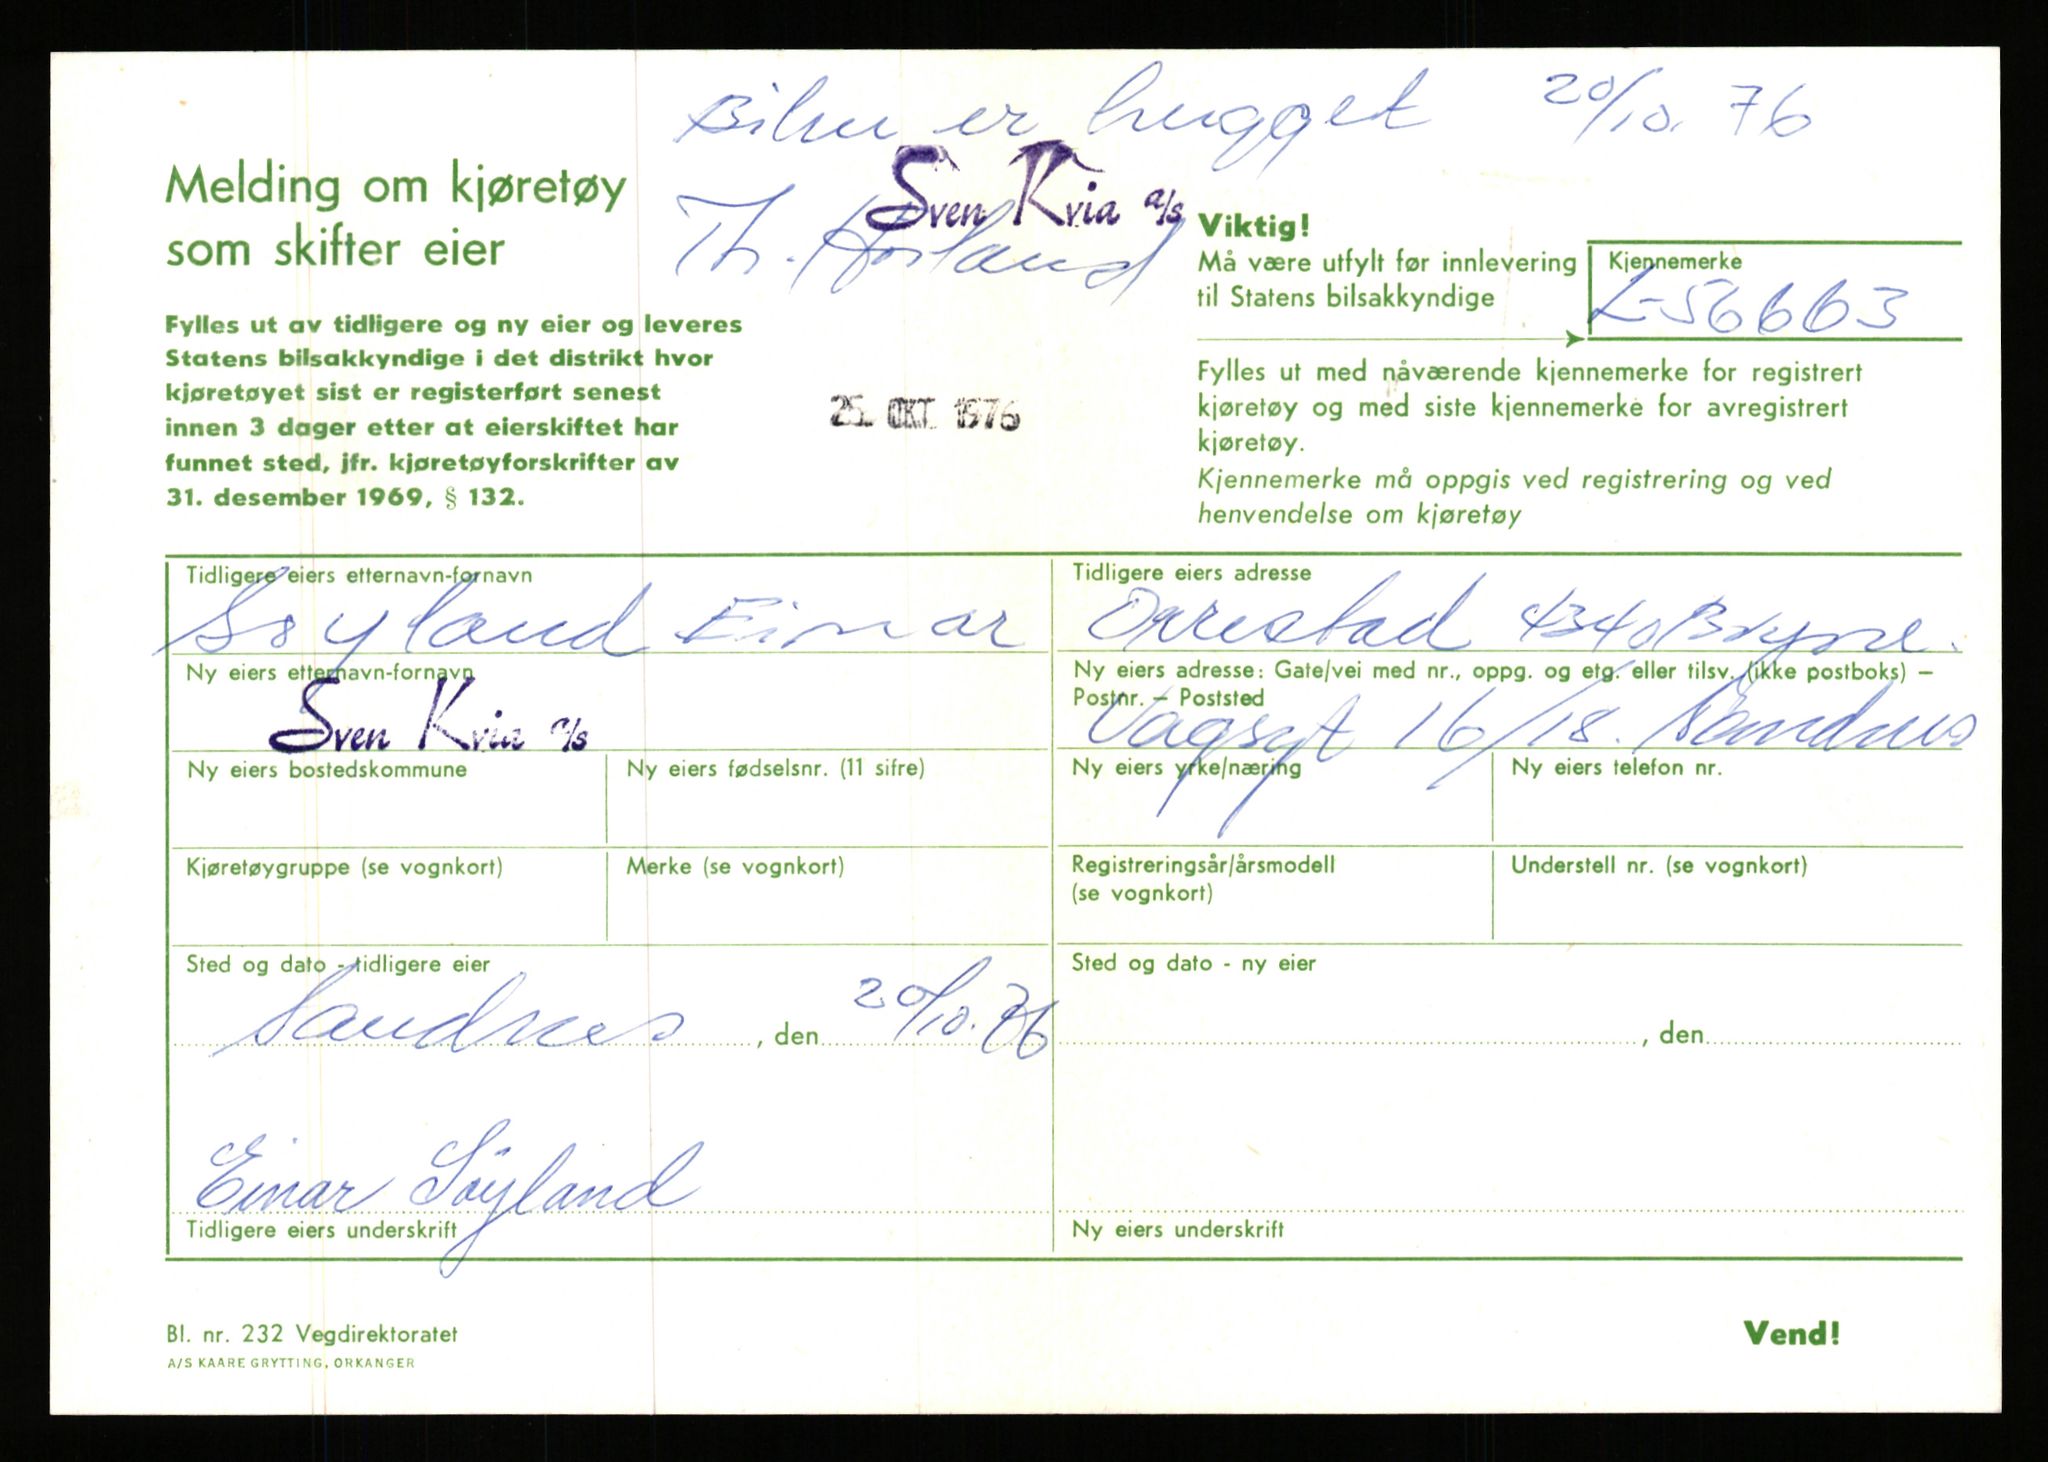 Bilen er hugget 20/10. 76
Sven Kvia a/s
Th. Høiland
Melding om kjøretøy
som skifter eier
Fylles ut av tidligere og ny eier og leveres
Statens bilsakkyndige i det distrikt hvor
kjøretøyet sist er registerført senest
innen 3 dager etter at eierskiftet har
funnet sted, jfr. kjøretøyforskrifter av
31. desember 1969, § 132.
25. OKT. 1976
Viktig!
Må være utfylt før innlevering
til Statens bilsakkyndige
Kjennemerke
L-56663
Fylles ut med nåværende kjennemerke for registrert
kjøretøy og med siste kjennemerke for avregistrert
kjøretøy.
Kjennemerke må oppgis ved registrering og ved
henvendelse om kjøretøy
Tidligere eiers etternavn-fornavn
Søyland Einar
Tidligere eiers adresse
Orrestad 4340 Bryne.
Ny eiers etternavn-fornavn
Sven Kvia a/s
Ny eiers adresse: Gate/vei med nr., oppg. og etg. eller tilsv. (ikke postboks) –
Postnr. – Poststed
Vagsgt 16/18. Sandnes
Ny eiers bostedskommune
Ny eiers fødselsnr. (11 sifre)
Ny eiers yrke/næring
Ny eiers telefon nr.
Kjøretøygruppe (se vognkort)
Merke (se vognkort)
Registreringsår/årsmodell
(se vognkort)
Understell nr. (se vognkort)
Sted og dato - tidligere eier
Sandnes, den 20/10. 76
Sted og dato - ny eier
, den
Einar Søyland
Tidligere eiers underskrift
Ny eiers underskrift
Bl. nr. 232 Vegdirektoratet
A/S KAARE GRYTTING, ORKANGER
Vend!